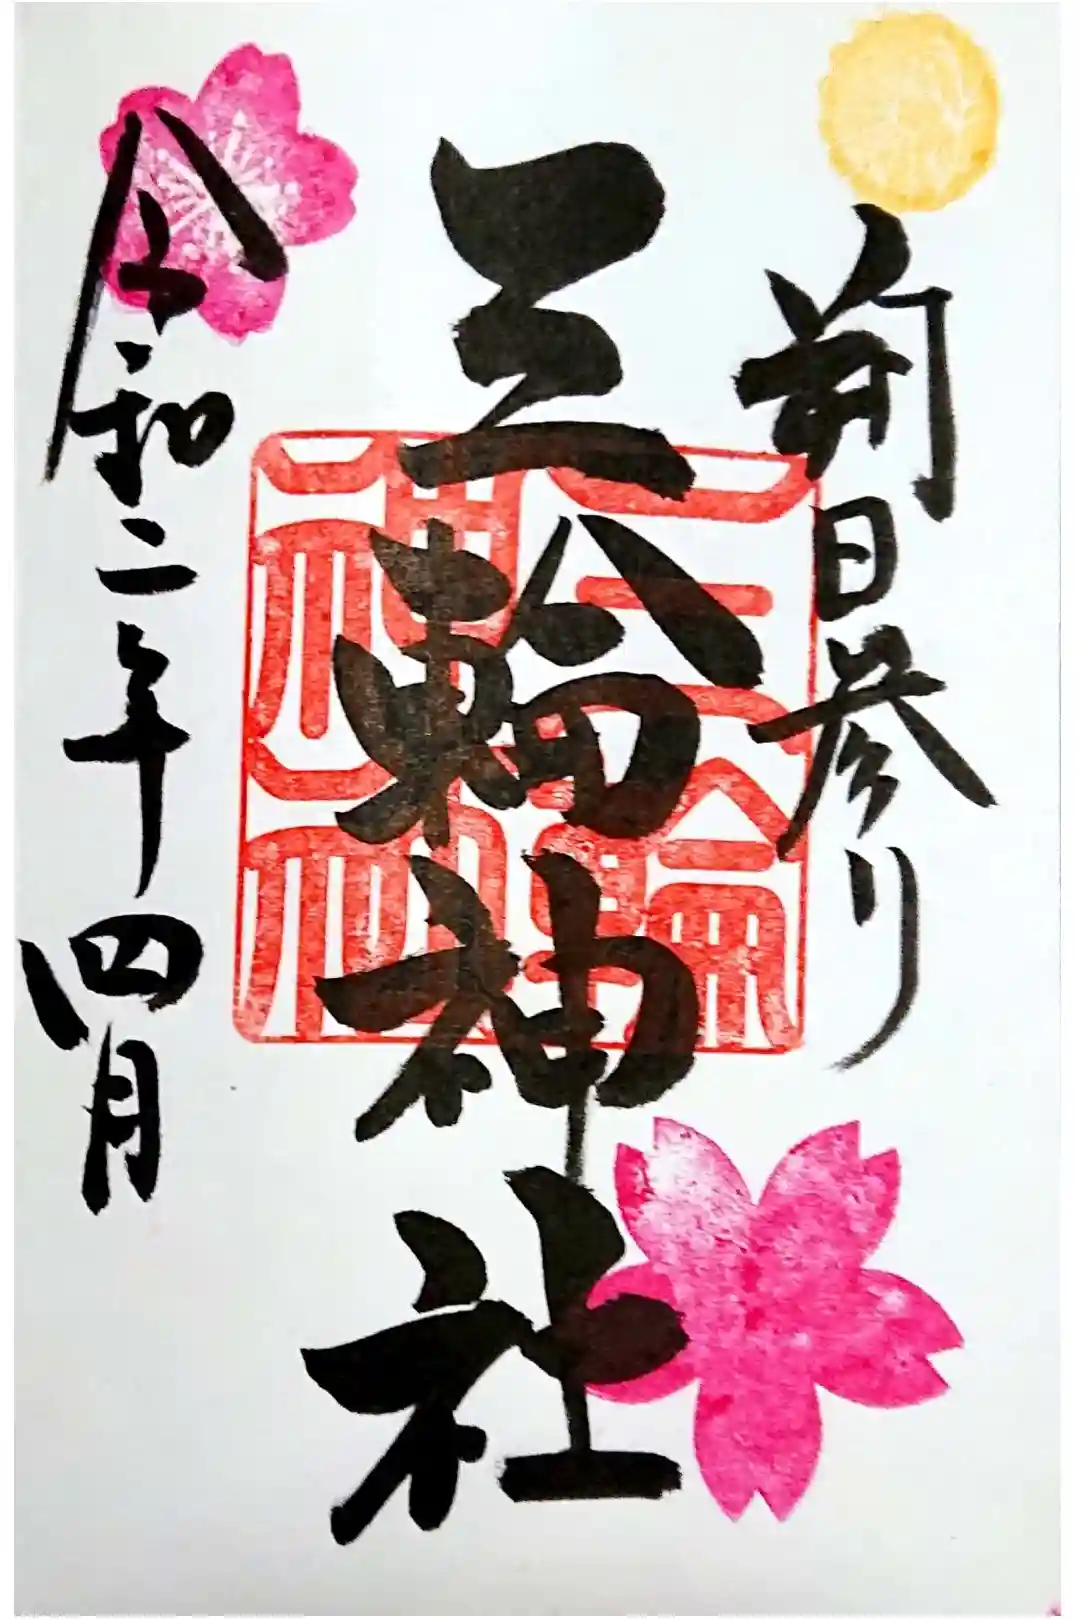 朔日参り
三輪神社
三輪神社
令和二年四月